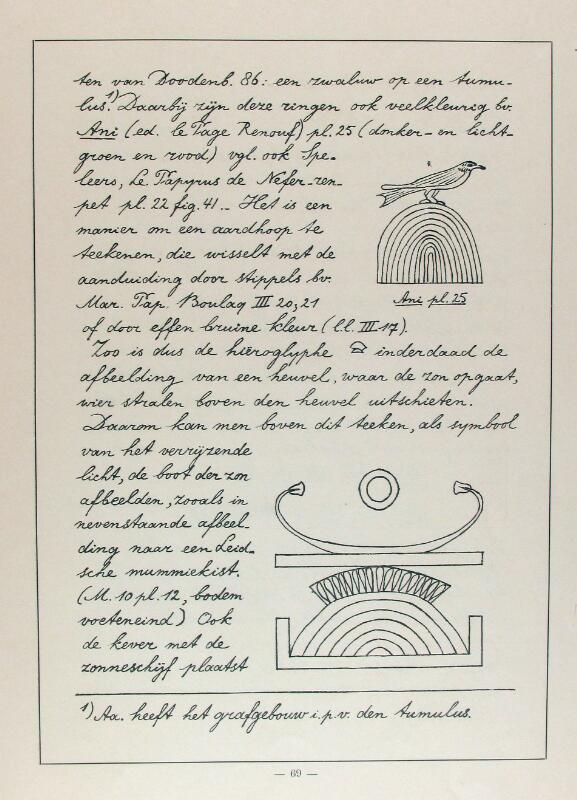 ten van Doodenb. 86: een zwaluw op een tumu-
lus.¹) Daarbij zijn deze ringen ook veelkleurig bv.
Ani (ed. le Page Renouf) pl. 25 (donker- en licht-
groen en rood) vgl. ook Spe-
leers, Le Papyrus de Nefer-ren-
pet pl. 22 fig. 41.- Het is een
manier om een aardhoop te
teekenen, die wisselt met de
aanduiding door stippels bv.
Mar. Pap. Boulaq III 20,21
of door effen bruine kleur (l.l. III 17).
Ani pl. 25
Zoo is dus de hiëroglyphe inderdaad de
afbeelding van een heuvel, waar de zon opgaat,
wier stralen boven den heuvel uitschieten.
Daarom kan men boven dit teeken, als symbool
van het verrijzende
licht, de boot der zon
afbeelden, zooals in
nevenstaande afbeel-
ding naar een Leid-
sche mummiekist.
(M. 10 pl. 12, bodem
voeteneind) Ook
de kever met de
zonneschijf plaatst
¹) Aa. heeft het grafgebouw i.p.v. den tumulus.
— 69 —